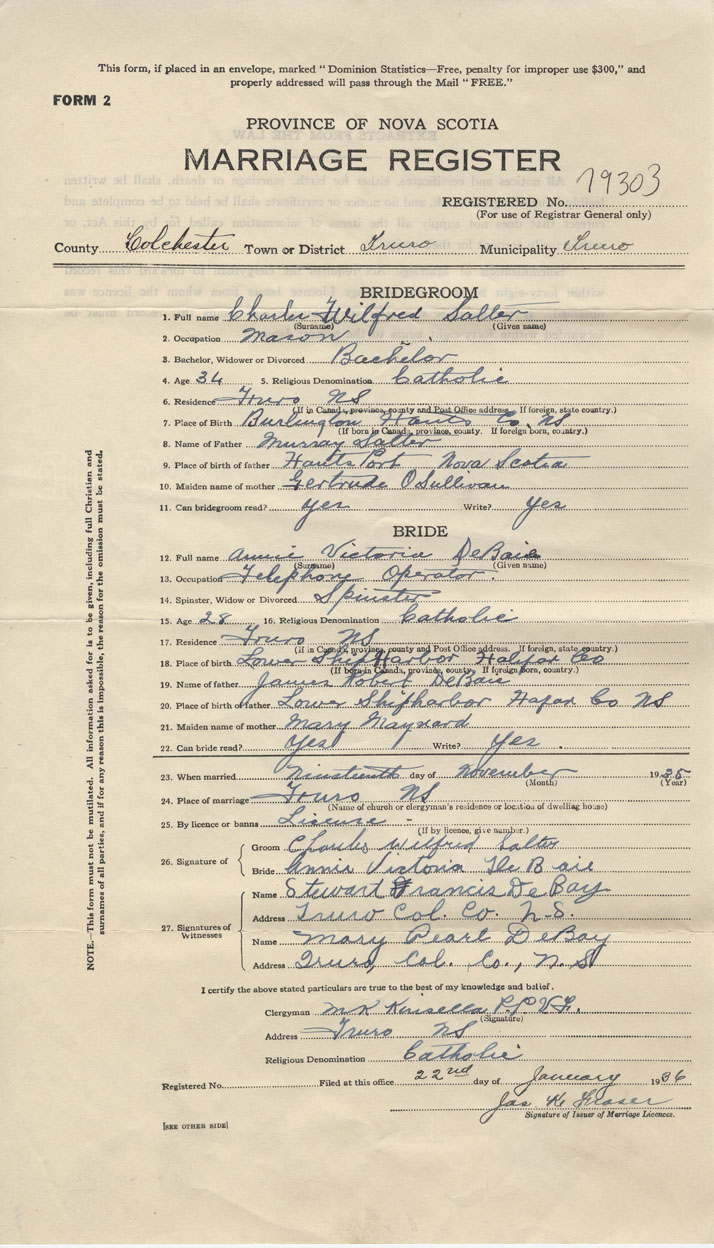 This form, if placed in an envelope, marked " Dominion Statistics—Free, penalty for improper use $300," and
properly addressed will pass through the Mail " FREE."
FORM 2
PROVINCE OF NOVA SCOTIA
MARRIAGE REGISTER
REGISTERED No. 19303
(For use of Registrar General only)
County Colchester Town or District Truro Municipality Truro
BRIDEGROOM
1. Full name Charles Wilfred Salter
(Surname) (Given name)
2. Occupation Mason
3. Bachelor, Widower or Divorced Bachelor
4. Age 34 5. Religious Denomination Catholic
6. Residence Truro NS
(If in Canada, province, county and Post Office address. If foreign, state country.)
7. Place of Birth Burlington Hants Co, NS
(If born in Canada, province, county. If foreign born, country.)
8. Name of Father Murray Salter
9. Place of birth of father Hants Port Nova Scotia
10. Maiden name of mother Gertrude O'Sullivan
11. Can bridegroom read? yes Write? Yes
BRIDE
12. Full name Annie Victoria DeBaie
(Surname) (Given name)
13. Occupation Telephone Operator.
14. Spinster, Widow or Divorced Spinster
15. Age 28 16. Religious Denomination Catholic
17. Residence Truro NS
(If in Canada, province, county and Post Office address. If foreign, state country.)
18. Place of birth Lower Ship Harbor Halifax Co
(If born in Canada, province, county. If foreign born, country.)
19. Name of father James Robert DeBaie
20. Place of birth of father Lower Shipharbor Hafax Co NS
21. Maiden name of mother Mary Maynard
22. Can bride read? Yes Write? Yes.
23. When married Nineteenth day of November 1935
(Month) (Year)
24. Place of marriage Truro NS
(Name of church or clergyman's residence or location of dwelling house)
25. By licence or banns License -
(If by licence, give number.)
26. Signature of
Groom Charles Wilfred Salter
Bride Annie Victoria DeBaie
27. Signatures of Witnesses
Name Stewart Francis DeBay
Address Truro Col. Co. N.S.
Name Mary Pearl DeBay
Address Truro, Col. Co., N.S
I certify the above stated particulars are true to the best of my knowledge and belief.
Clergyman M K Kinsella P.P. V.G.
(Signature)
Address Truro NS
Religious Denomination Catholic
Registered No. Filed at this office 22nd day of January 1936
Jas K Fraser
Signature of Issuer of Marriage Licences.
[SEE OTHER SIDE]
NOTE.—This form must not be mutilated. All information asked for is to be given, including full Christian and
surnames of all parties, and if for any reason this is impossible, the reason for the omission must be stated.